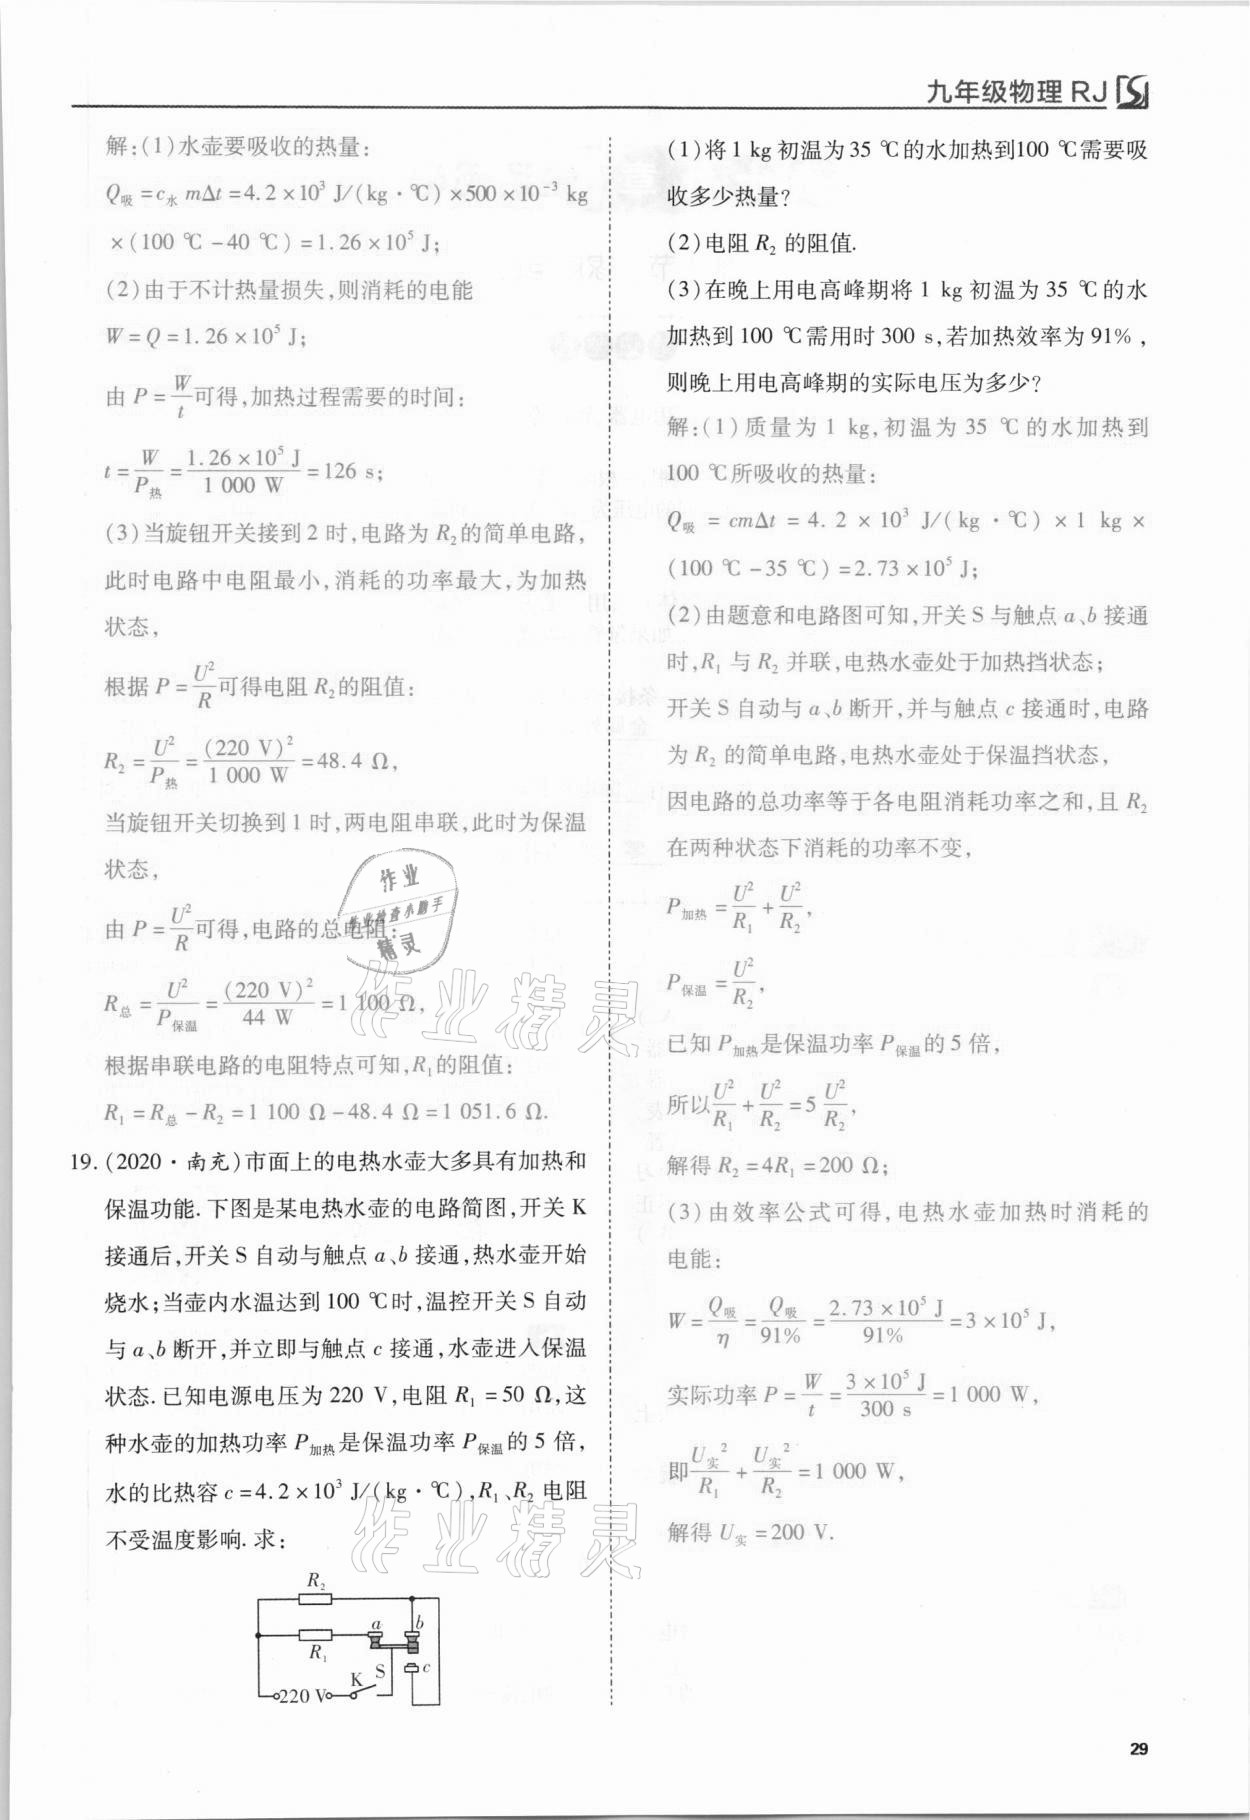 九年级物理 RJ
解:(1)水壶要吸收的热量:
Q吸 =c水 mΔt=4.2×10³ J/(kg·℃)×500×10⁻³ kg
×(100 ℃-40 ℃)=1.26×10⁵ J;
(2)由于不计热量损失,则消耗的电能
W=Q=1.26×10⁵ J;
由 P=W/t可得,加热过程需要的时间:
t=W/P热=1.26×10⁵ J/1 000 W=126 s;
(3)当旋钮开关接到 2 时,电路为 R₂的简单电路,
此时电路中电阻最小,消耗的功率最大,为加热
状态,
根据 P=U²/R可得电阻 R₂的阻值:
R₂=U²/P热=(220 V)²/1 000 W=48.4 Ω,
当旋钮开关切换到 1 时,两电阻串联,此时为保温
状态,
由 P=U²/R可得,电路的总电阻:
R总=U²/P保温=(220 V)²/44 W=1 100 Ω,
根据串联电路的电阻特点可知,R₁的阻值:
R₁=R总-R₂=1 100 Ω-48.4 Ω=1 051.6 Ω.
19.(2020·南充)市面上的电热水壶大多具有加热和
保温功能.下图是某电热水壶的电路简图,开关 K
接通后,开关 S 自动与触点 a、b 接通,热水壶开始
烧水;当壶内水温达到 100 ℃时,温控开关 S 自动
与 a、b 断开,并立即与触点 c 接通,水壶进入保温
状态.已知电源电压为 220 V,电阻 R₁=50 Ω,这
种水壶的加热功率 P加热是保温功率 P保温的 5 倍,
水的比热容 c=4.2×10³ J/(kg·℃),R₁、R₂ 电阻
不受温度影响.求:
R₂
a
b
R₁
K
S
c
220 V
(1)将 1 kg 初温为 35 ℃的水加热到100 ℃需要吸
收多少热量?
(2)电阻 R₂ 的阻值.
(3)在晚上用电高峰期将 1 kg 初温为 35 ℃的水
加热到 100 ℃需用时 300 s,若加热效率为 91%,
则晚上用电高峰期的实际电压为多少?
解:(1)质量为 1 kg,初温为 35 ℃的水加热到
100 ℃所吸收的热量:
Q吸=cmΔt=4.2×10³ J/(kg·℃)×1 kg×
(100 ℃-35 ℃)=2.73×10⁵ J;
(2)由题意和电路图可知,开关 S 与触点 a、b 接通
时,R₁ 与 R₂ 并联,电热水壶处于加热挡状态;
开关 S 自动与 a、b 断开,并与触点 c 接通时,电路
为 R₂ 的简单电路,电热水壶处于保温挡状态,
因电路的总功率等于各电阻消耗功率之和,且 R₂
在两种状态下消耗的功率不变,
P加热=U²/R₁+U²/R₂,
P保温=U²/R₂,
已知 P加热是保温功率 P保温的 5 倍,
所以U²/R₁+U²/R₂=5 U²/R₂,
解得 R₂=4R₁=200 Ω;
(3)由效率公式可得,电热水壶加热时消耗的
电能:
W=Q吸/η=Q吸/91%=2.73×10⁵ J/91%=3×10⁵ J,
实际功率 P=W/t=3×10⁵ J/300 s=1 000 W,
即U实²/R₁+U实²/R₂=1 000 W,
解得 U实=200 V.
作业
作业检查小助手
精灵
作业精灵
作业精灵
29